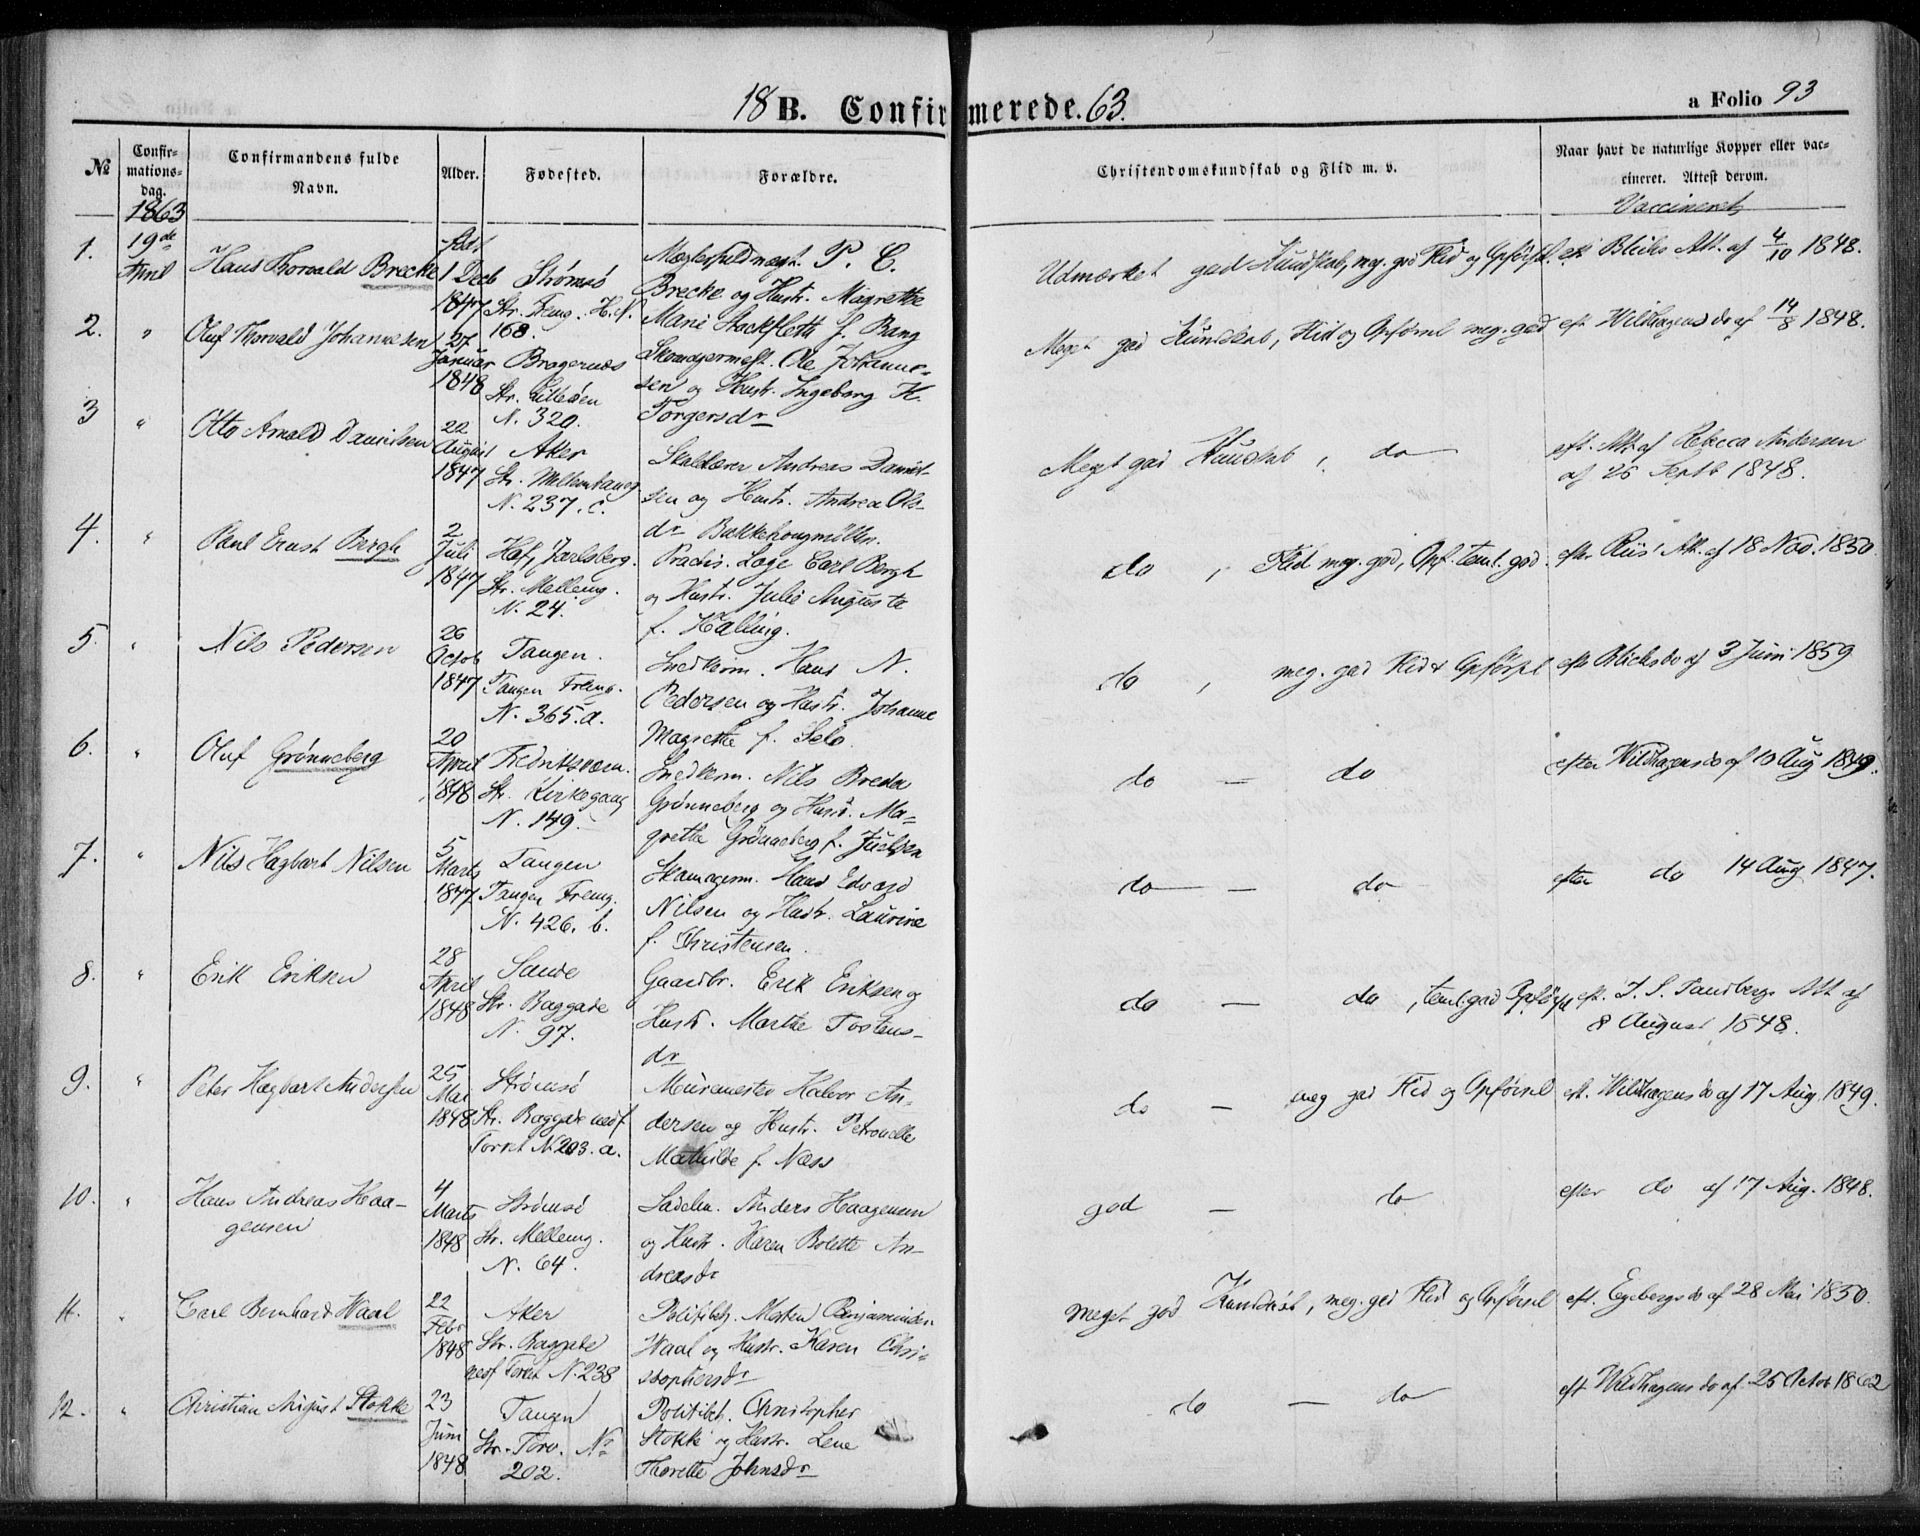 18 B. Confirmerede. 63.
a Folio 93
№
Confirmations-dag.
Confirmandens fulde Navn.
Alder.
Fødested.
Forældre.
Christendomskundskab og Flid m. v.
Naar havt de naturlige Kopper eller vaccineret. Attest derom.
1863
Vaccineret
1. 19de April Hans Thorvald Brecke
født 1 Decb 1847
Strømsø
Str. Freng. H. N. 168.
P. C.
Brecke og Hustr. Magrethe
Marie Stockfleth f. Bang
Udmærket god Kundskab, meg. god Flid og Opførsel
eft. Blichs Att. af 4/10 1848.
2. " Oluf Thorvald Johannesen
27 Januar 1848
Bragernæs
Str. N. 320.
Skomagermest. Ole Johanne-
sen og Hustr. Ingeborg K.
Torgersdr
Meget god Kundskab, Flid og Opførsel meg. god
eft. Wildhagens do af 14/8 1848.
3 " Otto Arnold Danielsen
22 August 1847
Aker
N. 237. c.
Andreas Daniel-
sen og Hustr. Andrea Ols-
dr
Meget god Kundskab, do
eft. Att. af Rebecca Andersen
af 25 Septb 1848.
4. " Paul Ernst Bergh
2 Juli 1847
Hof, Jarlsberg.
Str. Melleng.
N. 24.
Practis. Læge Carl Bergh
og Hustr. Julie Augusta
f. Halling.
do, Flid meg. god, Opf. teml. god.
efter Riis' Att. af 18 Nov. 1850.
5. " Nils Pedersen
26 Octob 1847
Tangen.
Tangen Freng.
N. 365. a.
Snedkerm. Hans N.
Pedersen og Hustr. Johanne
Magrethe f. Selø.
do, meg. god Flid & Opførsel
eft. Blichs do af 3 Juni 1859
6. " Oluf Grønneberg
20 April 1848
Fredriksværn.
Str. Kirkegang
N. 149.
Snedkerm. Nils Breda
Grønneberg og Hustr. Ma-
grethe Grønneberg f. Juelsen
do — do
efter Wildhagens do af 10 Aug 1849.
7. " Nils Hagbart Nilsen
5 Marts 1847
Tangen
Tangen Freng.
N. 426. b.
Skomagerm. Hans Edvard
Nilsen og Hustr. Laurine
f. Christensen.
do — do
efter do 14 Aug 1847.
8. " Erik Eriksen
28 April 1848
Sande
Str. Baggade
N. 97.
Gaardbr. Erik Eriksen og
Hustr. Marthe Tostens-
dr
do — do, teml. god Opførsel
eft. J. S. Sandbergs Att af
8 August 1848.
9. " Peter Hagbart Andersen
25 Mai 1848
Strømsø
Str. Baggade nedf.
Torvet N. 203. a.
Muremester Halvor An-
dersen og Hustr. Petronelle
Mathilde f. Næss
do — meg god Flid og Opførsel
eft. Wildhagens do af 17 Aug. 1849.
10. " Hans Andreas Haa-
gensen
4 Marts 1848
Strømsø
Str. Melleng.
N. 64.
Anders Haagensen
og Hustr. Karen Bolette An-
dreasdr
god — do
efter do af 17 Aug. 1848.
11. " Carl Bernhard Waal
22 Febr 1848
Aker
Str. Baggade
nedf Torvet N. 238
Politibtj. Morten Benjaminsen
Waal og Hustr. Karen Chri-
stophersdr
meget god Kundskab, meg. god Flid og Opførsel
eft. Egebergs do af 28 Mai 1850.
12. " Christian August Stokke
23 Juni 1848
Tangen
Str. Torv. No
202.
Politibtj. Christopher
Stokke og Hustr. Lene
Thorette Johnsdr
do — do
eft. Wildhagens do af 25 Octob 1862